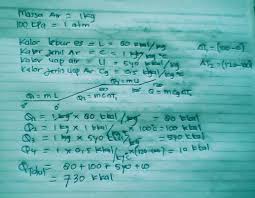 Massa Air = 1 kg
100 kPa = 1 atm
Kalor lebur es = L = 80 kkal/kg
Kalor jenis Air = C = 1 kkal/kg°C
Kalor uap air = U = 540 kkal/kg
Kalor jenis uap Air Cg = 0,5 kkal/kg°C
ΔT1 = (100-0)
ΔT2 = (120-100)
Q = mU
Q = mL
Q = mcΔT1
Q = mCgΔT2
Q1 = 1 kg × 80 kkal/kg = 80 kkal
Q2 = 1 kg × 1 kkal/kg°C × 100°C = 100 kkal
Q3 = 1 kg × 540 kkal/kg = 540 kkal
Q4 = 1 × 0,5 kkal/kg°C × (120-100) = 10 kkal
Qtotal = 80 + 100 + 540 + 10
= 730 kkal